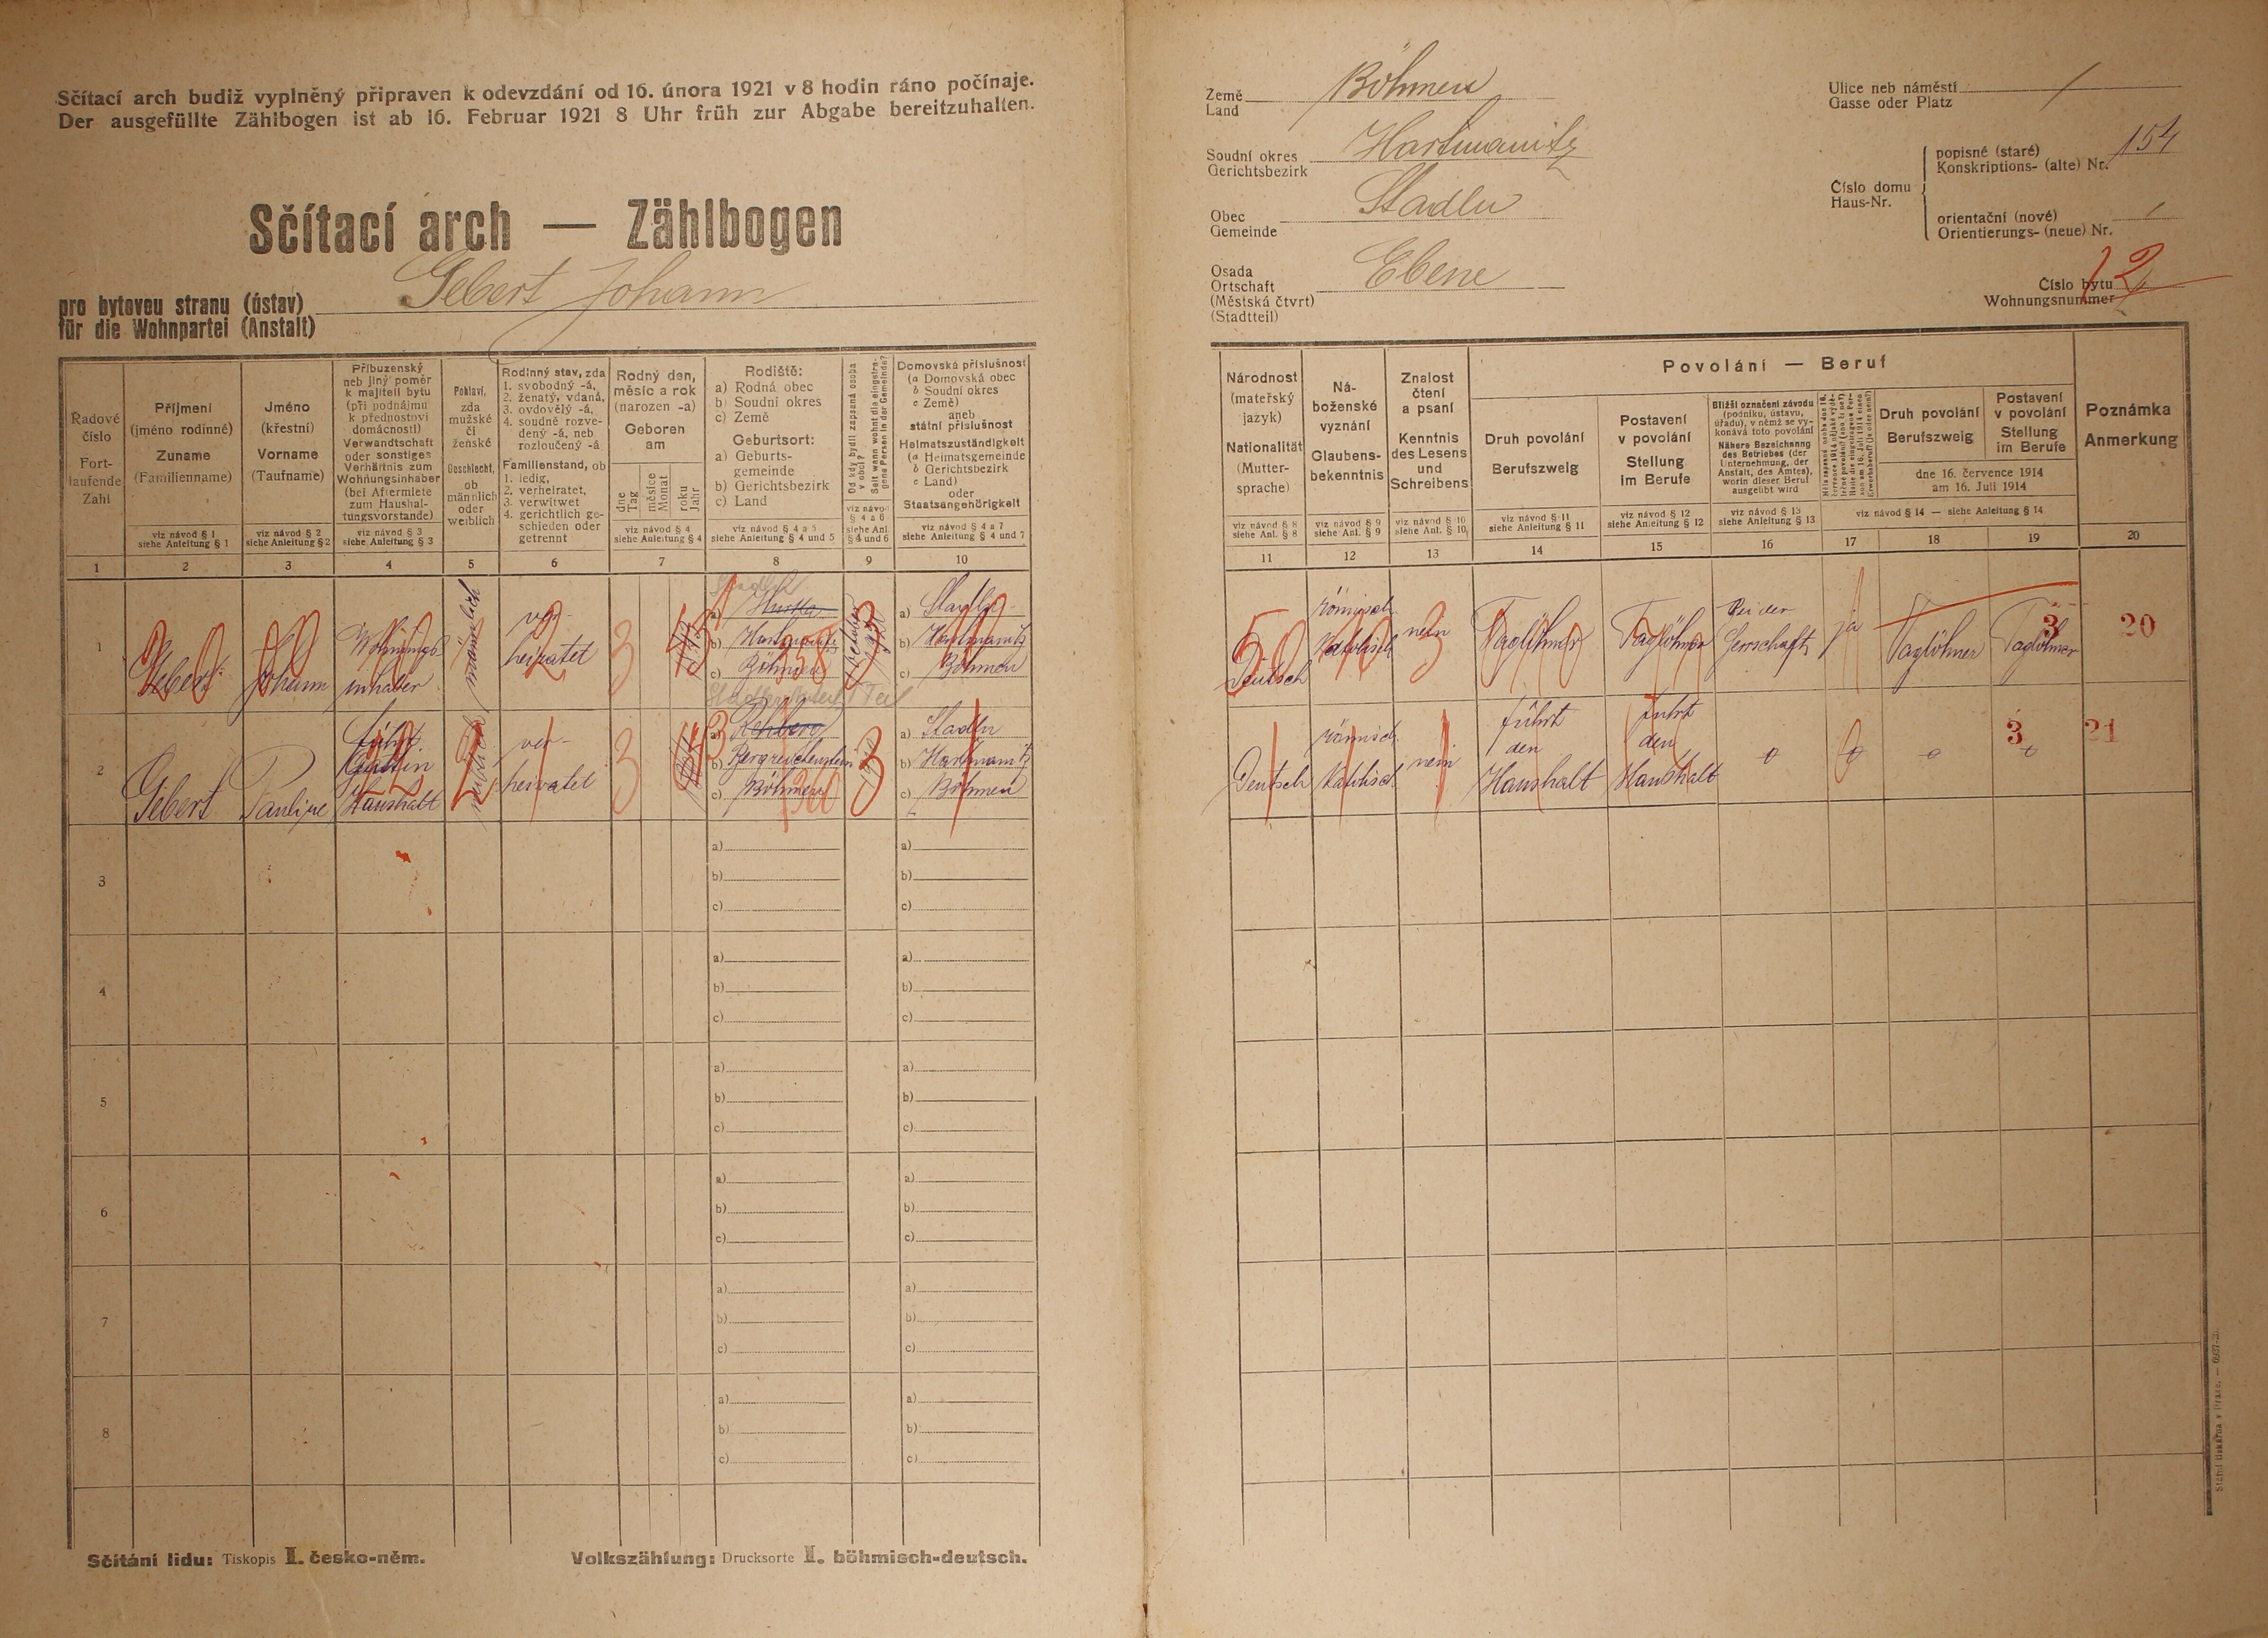 Sčítací arch budiž vyplněný připraven k odevzdání od 16. února 1921 v 8 hodin ráno počínaje.
Der ausgefüllte Zählbogen ist ab 16. Februar 1921 8 Uhr früh zur Abgabe bereitzuhalten.
Sčítací arch — Zählbogen
pro bytovou stranu (ústav)
für die Wohnpartei (Anstalt)
Gebert Johann
Země
Land
Böhmen
Soudní okres
Gerichtsbezirk
Hartmanitz
Obec
Gemeinde
Stadln
Osada
Ortschaft
(Městská čtvrt)
(Stadtteil)
Ebene
Ulice neb náměstí
Gasse oder Platz
Číslo domu
Haus-Nr.
popisné (staré)
Konskriptions- (alte) Nr.
154
orientační (nové)
Orientierungs- (neue) Nr.
Číslo bytu
Wohnungsnummer
2
Řadové
číslo
Fort-
laufende
Zahl
1
Příjmení
(jméno rodinné)
Zuname
(Familienname)
viz návod § 1
siehe Anleitung § 1
2
Jméno
(křestní)
Vorname
(Taufname)
viz návod § 2
siehe Anleitung § 2
3
Příbuzenský
neb jiný poměr
k majiteli bytu
(při podnájmu
k přednostovi
domácnosti)
Verwandtschaft
oder sonstiges
Verhältnis zum
Wohnungsinhaber
(bei Aftermiete
zum Haushal-
tungsvorstande)
viz návod § 3
siehe Anleitung § 3
4
Pohlaví,
zda
mužské
či
ženské
Geschlecht,
ob
männlich
oder
weiblich
5
Rodinný stav, zda
1. svobodný -á,
2. ženatý, vdaná,
3. ovdovělý -á,
4. soudně rozve-
dený -á, neb
rozloučený -á
Familienstand, ob
1. ledig,
2. verheiratet,
3. verwitwet
4. gerichtlich ge-
schieden oder
getrennt
6
Rodný den,
měsíc a rok
(narozen -a)
Geboren
am
dne
Tag
měsíce
Monat
roku
Jahr
viz návod § 4
siehe Anleitung § 4
7
Rodiště:
a) Rodná obec
b) Soudní okres
c) Země
Geburtsort:
a) Geburts-
gemeinde
b) Gerichtsbezirk
c) Land
viz návod § 4 a 5
siehe Anleitung § 4 und 5
8
Od kdy bydlí zapsaná osoba
v obci?
Seit wann wohnt die eingetra-
gene Person in der Gemeinde?
viz návod
§ 4 a 6
siehe Anl.
§ 4 und 6
9
Domovská příslušnost
(a Domovská obec
b Soudní okres
c Země)
aneb
státní příslušnost
Heimatszuständigkeit
(a Heimatsgemeinde
b Gerichtsbezirk
c Land)
oder
Staatsangehörigkeit
viz návod § 4 a 7
siehe Anleitung § 4 und 7
10
Národnost
(mateřský
jazyk)
Nationalität
(Mutter-
sprache)
viz návod § 8
siehe Anl. § 8
11
Ná-
boženské
vyznání
Glaubens-
bekenntnis
viz návod § 9
siehe Anl. § 9
12
Znalost
čtení
a psaní
Kenntnis
des Lesens
und
Schreibens
viz návod § 10
siehe Anl. § 10
13
Povolání — Beruf
Druh povolání
Berufszweig
viz návod § 11
siehe Anleitung § 11
14
Postavení
v povolání
Stellung
im Berufe
viz návod § 12
siehe Anleitung § 12
15
Bližší označení závodu
(podniku, ústavu,
úřadu), v němž se vy-
konává toto povolání
Nähere Bezeichnung
des Betriebes (der
Unternehmung, der
Anstalt, des Amtes),
worin dieser Beruf
ausgeübt wird
viz návod § 13
siehe Anleitung § 13
16
17
Druh povolání
Berufszweig
Postavení
v povolání
Stellung
im Berufe
dne 16. července 1914
am 16. Juli 1914
viz návod § 14 — siehe Anleitung § 14
18
19
Poznámka
Anmerkung
20
1
Gebert
Johann
Wohnungs-
inhaber
männlich
ver-
heiratet
3
Stadln
a)
b) Hartmanitz
c) Böhmen
a) Stadln
b) Hartmanitz
c) Böhmen
Deutsch
römisch
Katholisch
nein
Taglöhner
Taglöhner
Bei der
Herschaft
ja
Taglöhner
Taglöhner
3
20
2
Gebert
Pauline
Gattin
führt
Haushalt
weiblich
ver-
heiratet
3
a) Rehberg
b) Bergreichenstein
c) Böhmen
a) Stadln
b) Hartmanitz
c) Böhmen
Deutsch
römisch
Katholisch
nein
führt
den
Haushalt
führt
den
Haushalt
3
21
3
a)
b)
c)
a)
b)
c)
4
a)
b)
c)
a)
b)
c)
5
a)
b)
c)
a)
b)
c)
6
a)
b)
c)
a)
b)
c)
7
a)
b)
c)
a)
b)
c)
8
a)
b)
c)
a)
b)
c)
Sčítání lidu: Tiskopis I. česko-něm.
Volkszählung: Drucksorte I. böhmisch-deutsch.